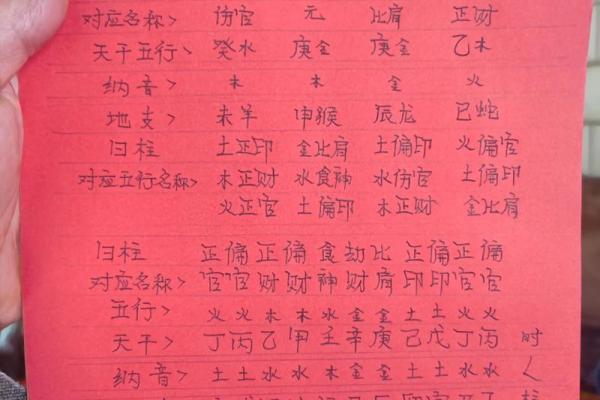 对应名称> 伤官 元 比肩 正财
天干五行> 癸水 庚金 庚金 乙木
纳音> 木 木 金 火
地支> 未羊 申猴 辰龙 巳蛇
日柱 土正印 金比肩 土偏印 火偏官
对应五行名称> 木正财 水食神 水伤官 土偏印
火正官 土偏印 木正财 金比肩
日柱 正偏正偏食劫比正偏正偏
对应名称> 官官财财神财肩印印官官
五行> 火火木木水金金土土火火
天干> 丁丙乙甲壬辛庚己戊丁丙 时
纳音> 土土水水木金金土土水水